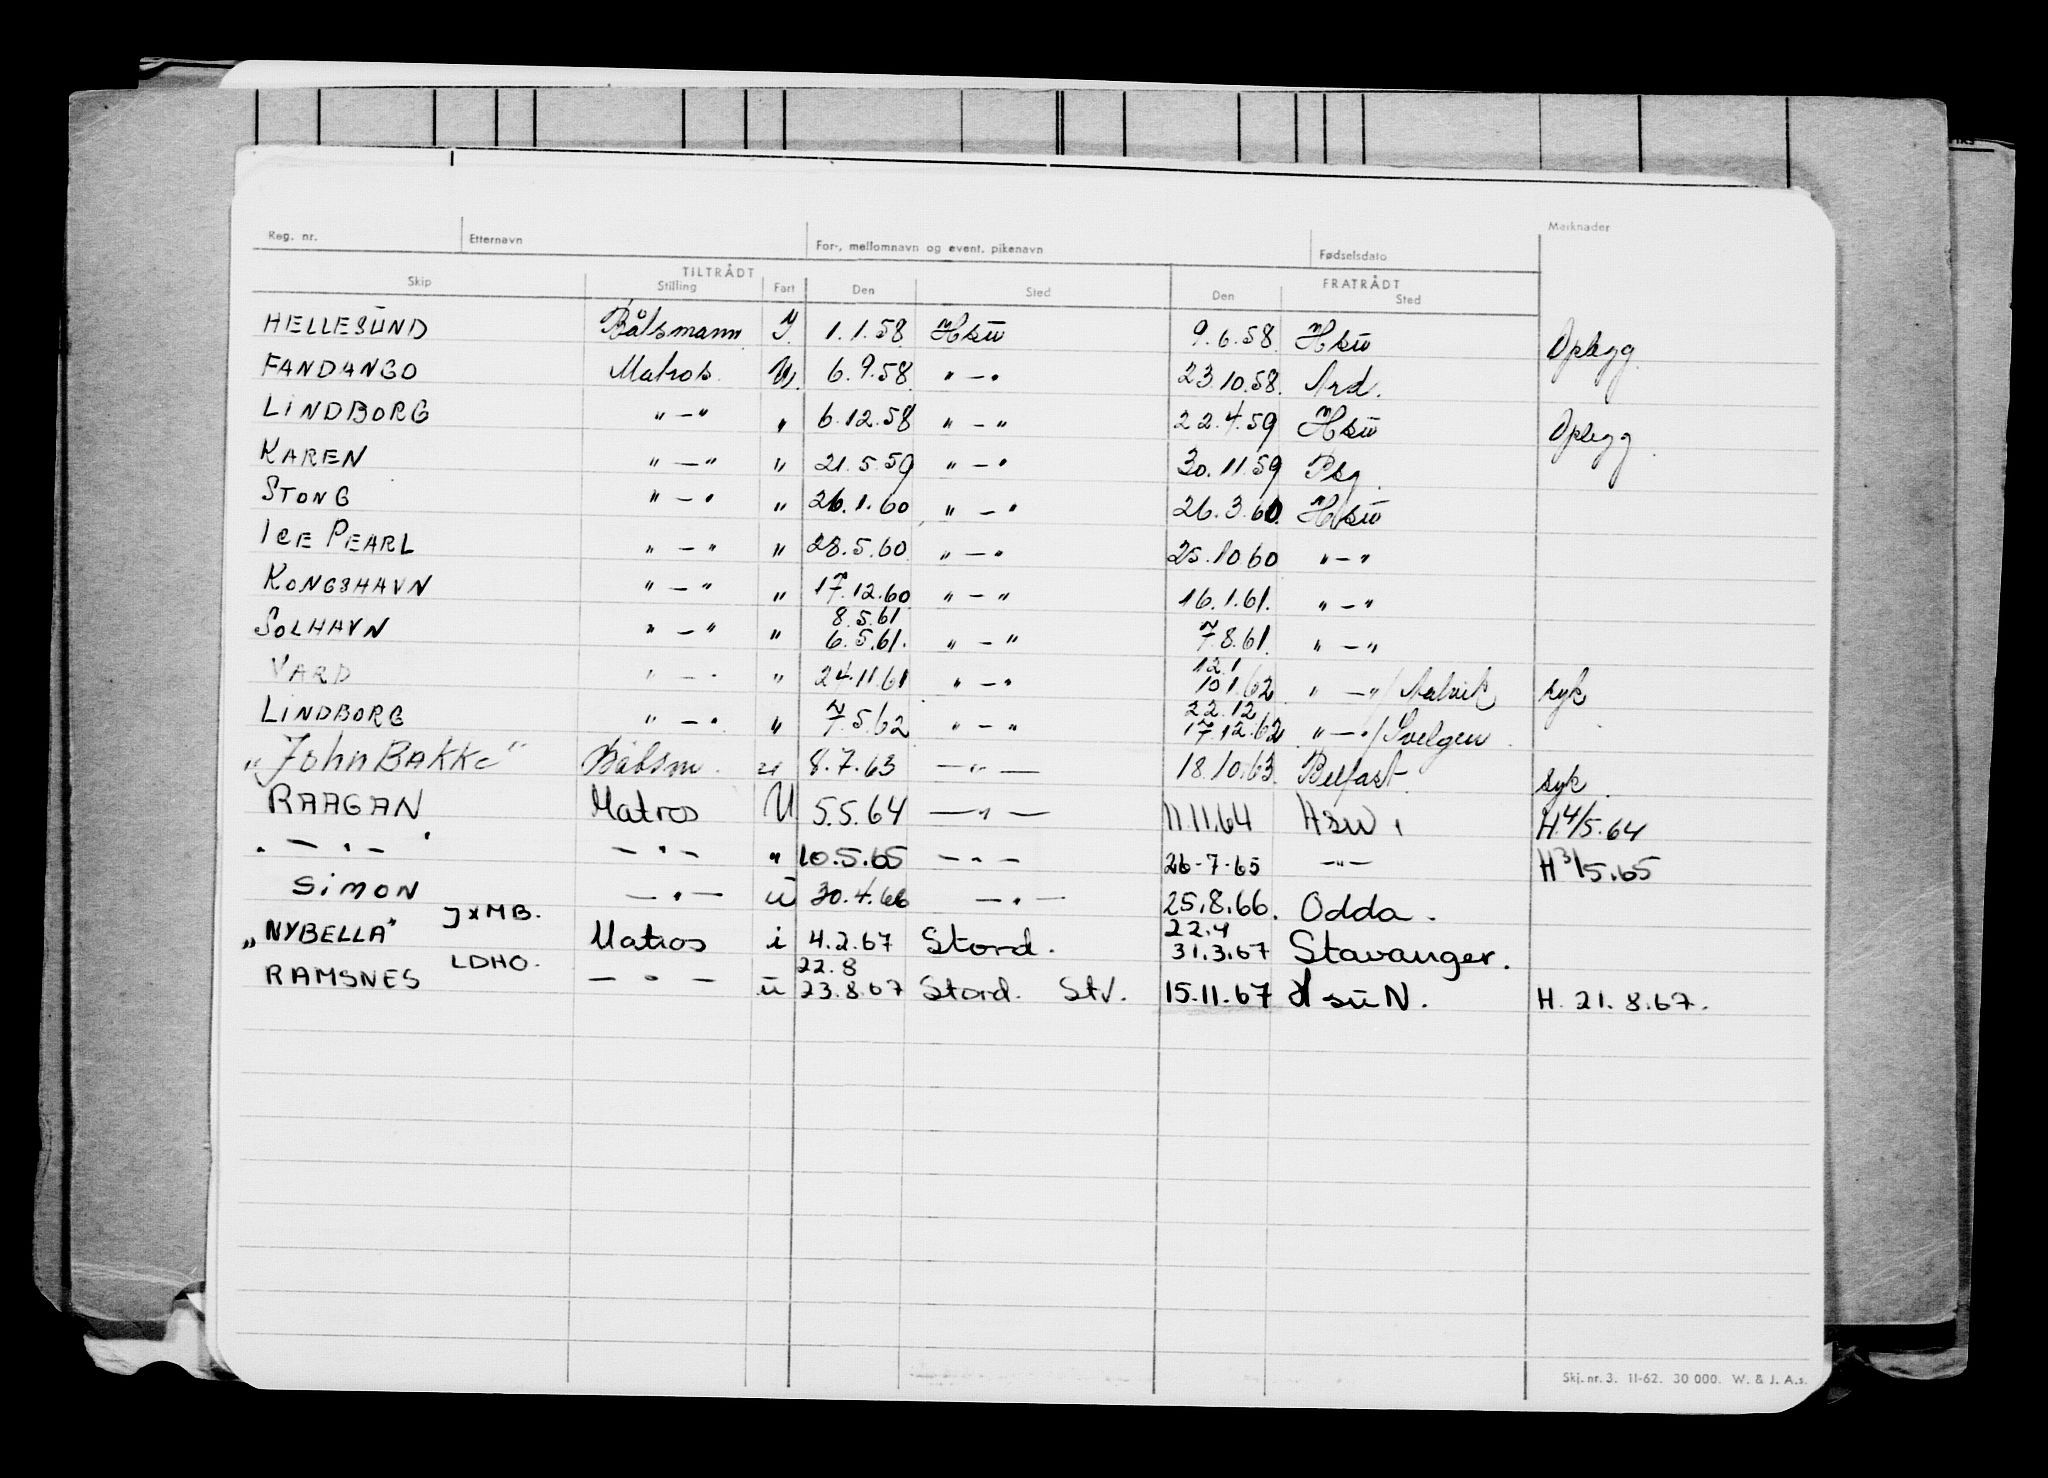 Reg. nr. Etternavn For-, mellomnavn og event. pikenavn Fødselsdato Merknader
TILTRÅDT FRATRÅDT
Skip Stilling Fart Den Sted Den Sted
HELLESUND Båtsmann I 1.1.58 Hsu 9.6.58. Hsu Oplegg
FANDANGO Matros. U. 6.9.58. " - " 23.10.58. Ard.
LINDBORG " - " " 6.12.58 " - " 22.4.59 Hsu Oplegg
KAREN " - " " 21.5.59 " - " 30.11.59 Psg.
STONG " - " " 26.1.60 " - " 26.3.60. Hsu
ICE PEARL " - " " 28.5.60 " - " 25.10.60 " - "
KONGSHAVN " - " " 17.12.60 " - " 16.1.61. " - "
8.5.61
SOLHAVN " - " " 6.5.61. " - " 7.8.61. " - "
12.1
VARD " - " " 24.11.61 " - " 10.1.62 " - " / Aalvik syk
22.12
LINDBORG " - " " 7.5.62 " - " 17.12.62 " - " / Svelgen
"John BAKKE" Båtsm. u 8.7.63 — " — 18.10.63. Belfast. syk.
RAAGAN Matros U 5.5.64 — " — 11.11.64 Hsu. H.4/5.64
" — " — " — " — " 10.5.65 — " — 26-7-65 — " — H3/5.65
SIMON — " — u 30.4.66 — " — 25.8.66. Odda.
JXMB. 22.4
"NYBELLA" Matros i 4.2.67 Stord. 31.3.67 Stavanger.
LDHO. 22.8
RAMSNES — " — u 23.8.67 Stord. Stv. 15.11.67 HsuN. H. 21.8.67.
Skj. nr. 3. 11-62. 30 000. W. & J. A.s.